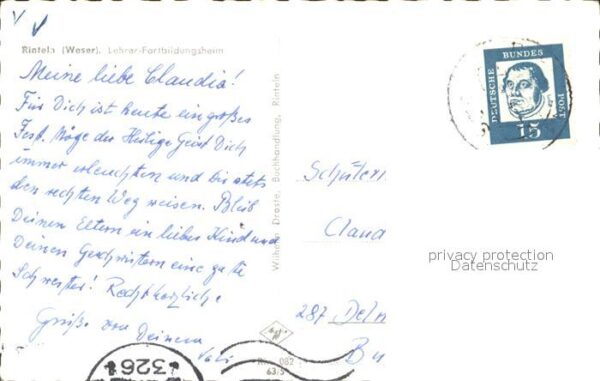 Rinteln (Weser). Lehrer-Fortbildungsheim
Meine liebe Claudia!
Für Dich ist heute ein großes
Fest. Möge der Heilige Geist Dich
immer erleuchten und Dir stets
den rechten Weg weisen. Bleib
Deinen Eltern ein liebes Kind und
Deinen Geschwistern eine gute
Schwester! Recht herzliche
Grüße von Deinem
Wilhelm Droste, Buchhandlung, Rinteln
DEUTSCHE BUNDES POST
15
Schülerin
Claud
287 Delm
privacy protection
Datenschutz
082
63/5
326